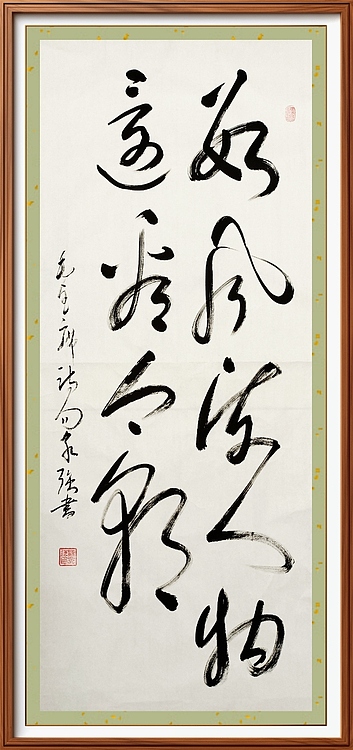 数风流人物
还看今朝
毛主席诗句家强书